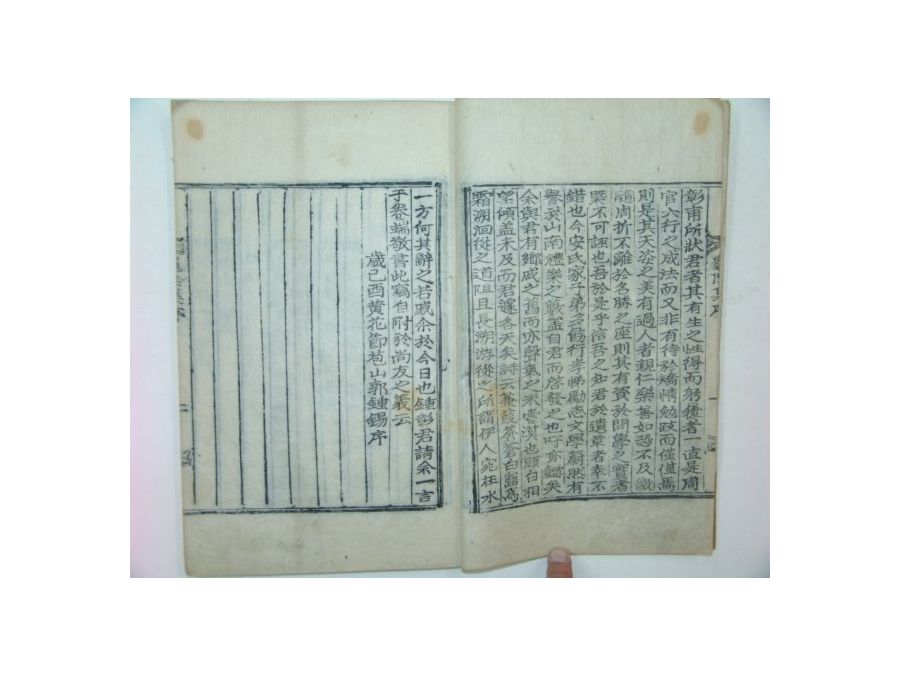 彰甫所狀君者其有生之性得而躬獲者一直是周
官六行之成法而又非有待於矯情勉跂而僅僅焉
則是其天姿之美有過人者親仁樂善如恐不及繳
隨周折不離於名勝之座則其有資於問學之實者
槩不可誣也吾於是乎信吾之知君於遺章者幸不
錯也今安氏家子弟多飭行孝悌勵志文學蔚然有
譽於山南禮樂之數盖自君而啓發之也吁亦韙矣
余與君有鄕戚之舊而亦聲氣之末嘗漠也頭白相
望傾盖未及而君遽吝天矣詩云蒹葭蒼蒼白露爲
霜溯洄從之道阻且長溯游從之所謂伊人宛在水
一方何其辭之若戚余於今日也鍾彰君請余一言
于卷端敬書此竊自附於尚友之義云
歲己酉黄花節苞山郭鍾錫序